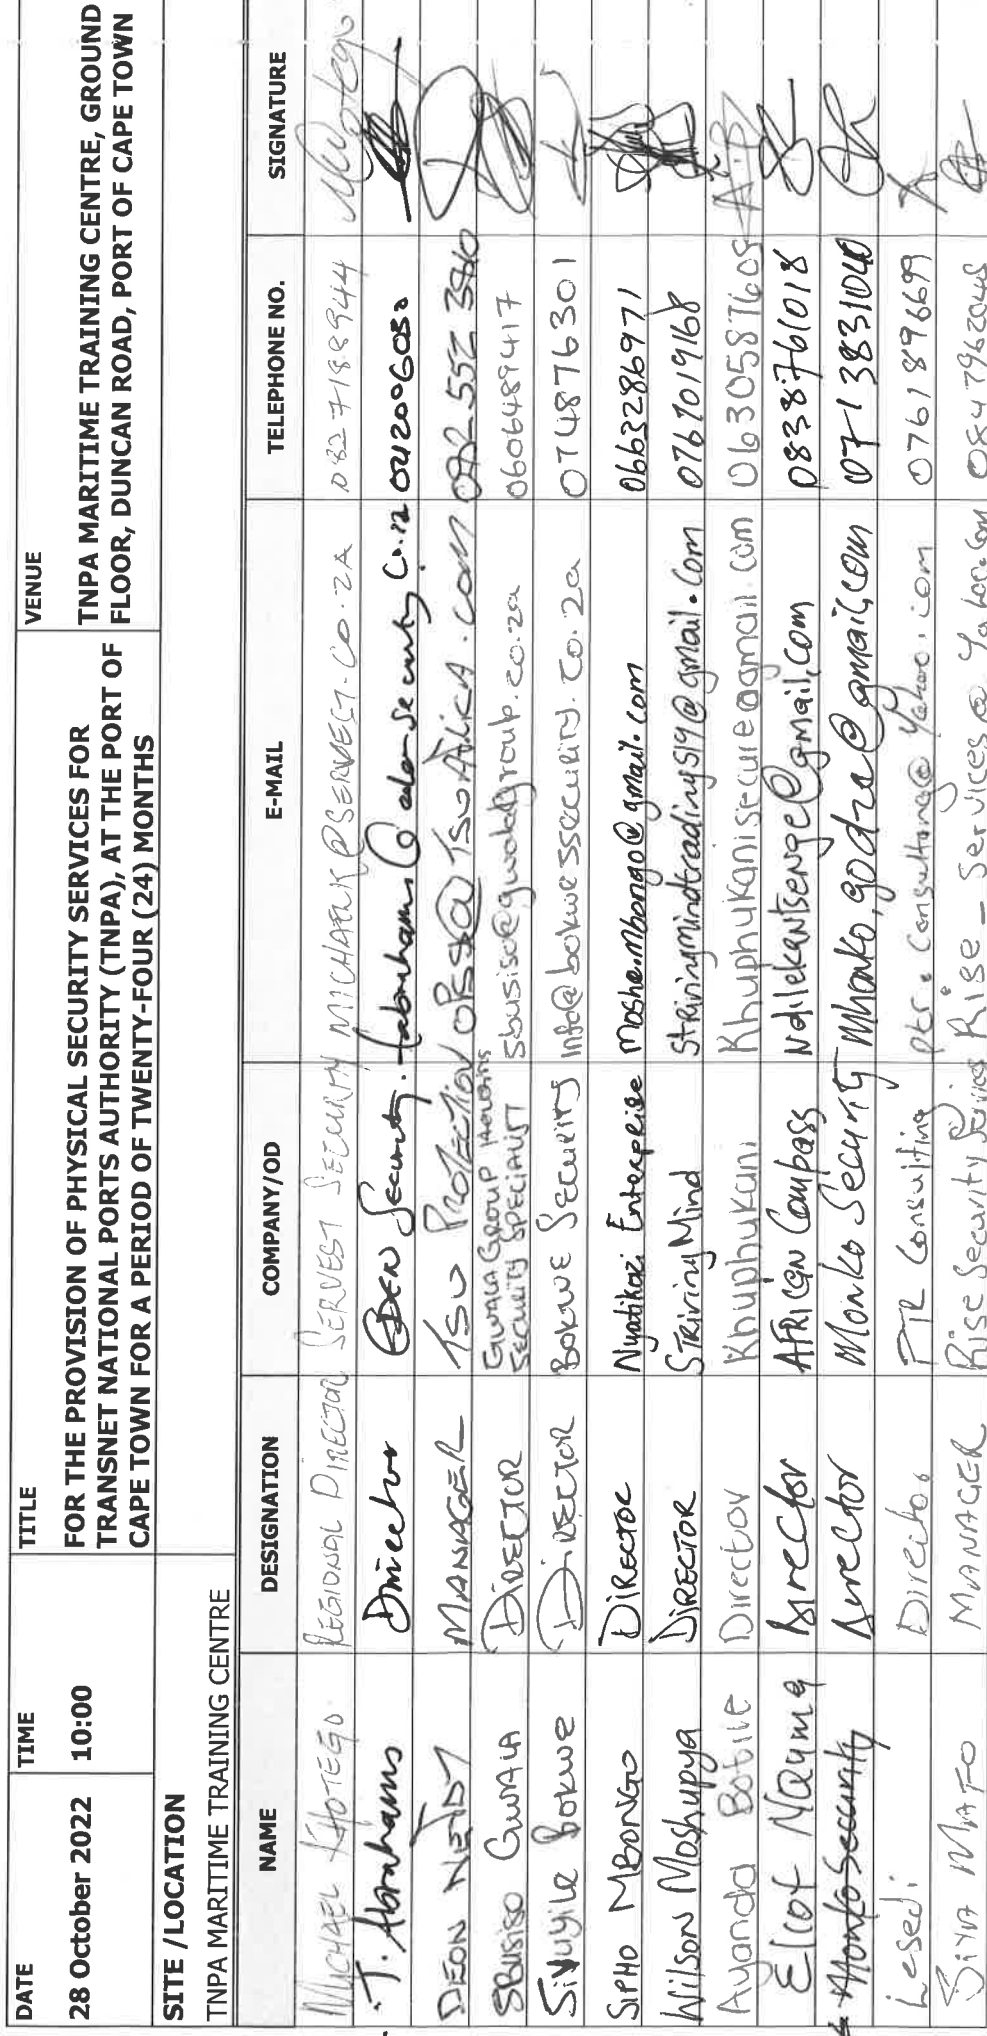 DATE
28 October 2022
TIME
10:00
TITLE
FOR THE PROVISION OF PHYSICAL SECURITY SERVICES FOR
TRANSNET NATIONAL PORTS AUTHORITY (TNPA), AT THE PORT OF
CAPE TOWN FOR A PERIOD OF TWENTY-FOUR (24) MONTHS
VENUE
TNPA MARITIME TRAINING CENTRE, GROUND
FLOOR, DUNCAN ROAD, PORT OF CAPE TOWN
SITE /LOCATION
TNPA MARITIME TRAINING CENTRE
NAME DESIGNATION COMPANY/OD E-MAIL TELEPHONE NO. SIGNATURE
MICHAEL REGIONAL DIRECTOR SERVEST SECURITY MICHAELK@SERVEST.CO.ZA 0827188944
T. Abrahams Director EDEN Security 0412006080
DEON MANAGER TSU PROTECTION
SBUSISO GWALA DIRECTOR GWALA GROUP HOLDINGS
SECURITY SPECIALIST 0606489417
Sivuyile Bokwe DIRECTOR BOKWE SECURITY info@bokwessecurity.co.za 074876301
SIPHO MBONGO DIRECTOR Nyatikazi Enterprise moshe.mbongo@gmail.com 0663286971
Wilson Moshupya DIRECTOR Striving Mind Strivingmindtrading519@gmail.com 0767019168
Ayanda Botile Director Khuphukani Khuphukanisecure@gmail.com 0630587605
Elcot Director AFRICAN Compass Ndilekantsenge@gmail.com 0838761018
Monko Security Director Monko Security 0713831040
Lesedi Director PTR Consulting ptr.consultong@yahoo.com 0761896699
MANAGER Rise Security Services Rise_Services@yahoo.com 0847962048